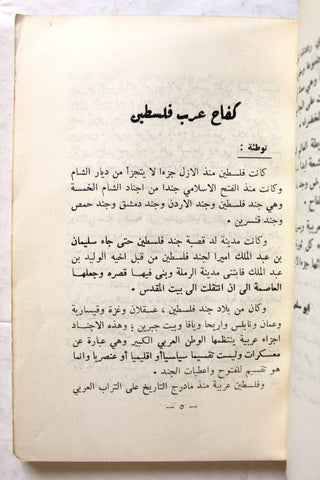 كفاح عرب فلسطين
توطئة :
كانت فلسطين منذ الازل جزءا لا يتجزأ من ديار الشام
وكانت منذ الفتح الاسلامي جندا من اجناد الشام الخمسة
وهي جند فلسطين وجند الاردن وجند دمشق وجند حمص
وجند قنسرين .
وكانت مدينة لد قصبة جند فلسطين حتى جاء سليمان
بن عبد الملك اميرا لجند فلسطين من قبل اخيه الوليد بن
عبد الملك فابتنى مدينة الرملة وبنى فيها قصره وجعلها
العاصمة الى ان انتقلت الى بيت المقدس .
وكان من بلاد جند فلسطين ، عسقلان وغزة وقيسارية
وعمان ونابلس واريحا ويافا وبيت جبرين ؛ وهذه الاجناد
اجزاء عربية ينتظمها الوطن العربي الكبير وهي عبارة عن
معسكرات وليست تقسيما سياسيا أو اقليميا أو عنصريا وانما
هو تقسيم للفتوح واعطيات الجند .
وفلسطين عربية منذ مادرج التاريخ على التراب العربي
— ٥ —